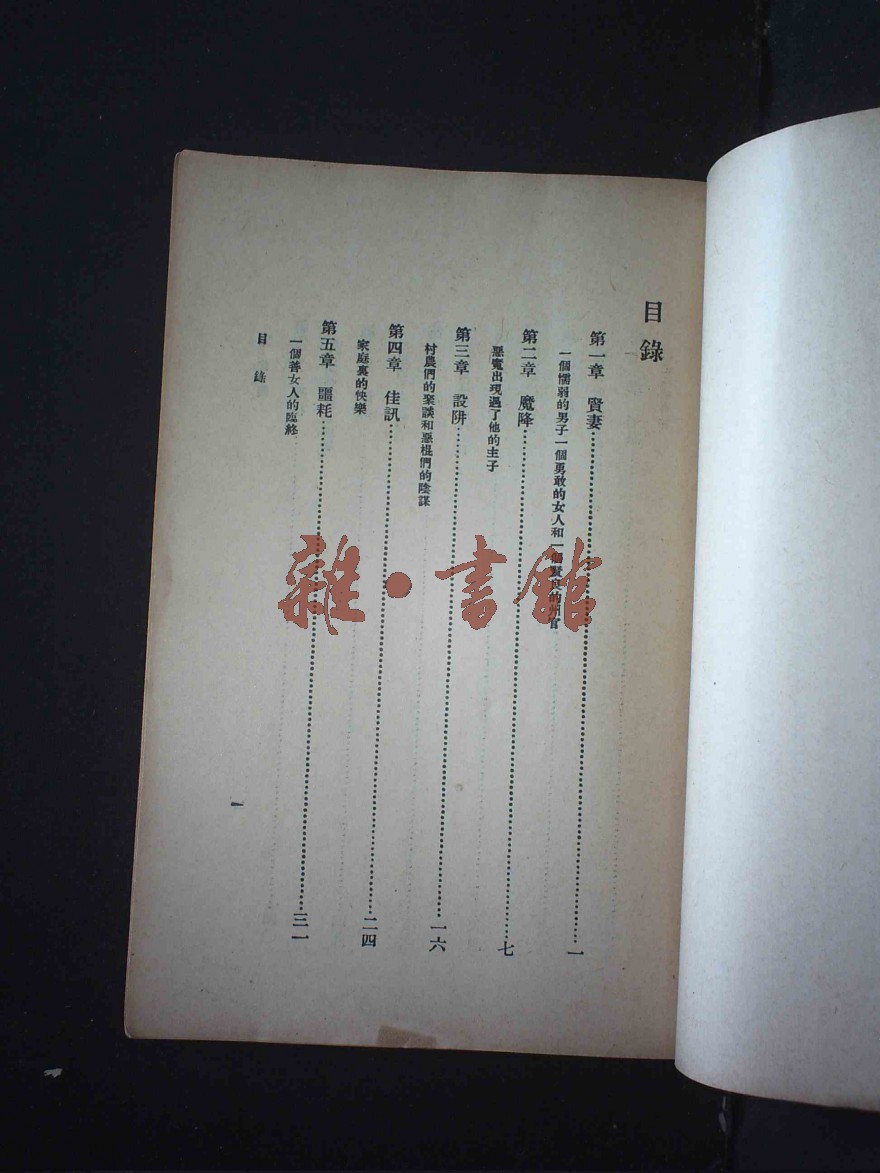 目錄
第一章　賢妻……一
一個懦弱的男子一個勇敢的女人和一個賢良的州官
第二章　魔降……七
惡魔出現遇了他的主子
第三章　設阱……一六
村農們的聚談和惡棍們的陰謀
第四章　佳訊……二四
家庭裏的快樂
第五章　噩耗……三一
一個善女人的臨終
目錄
一
雜·書館